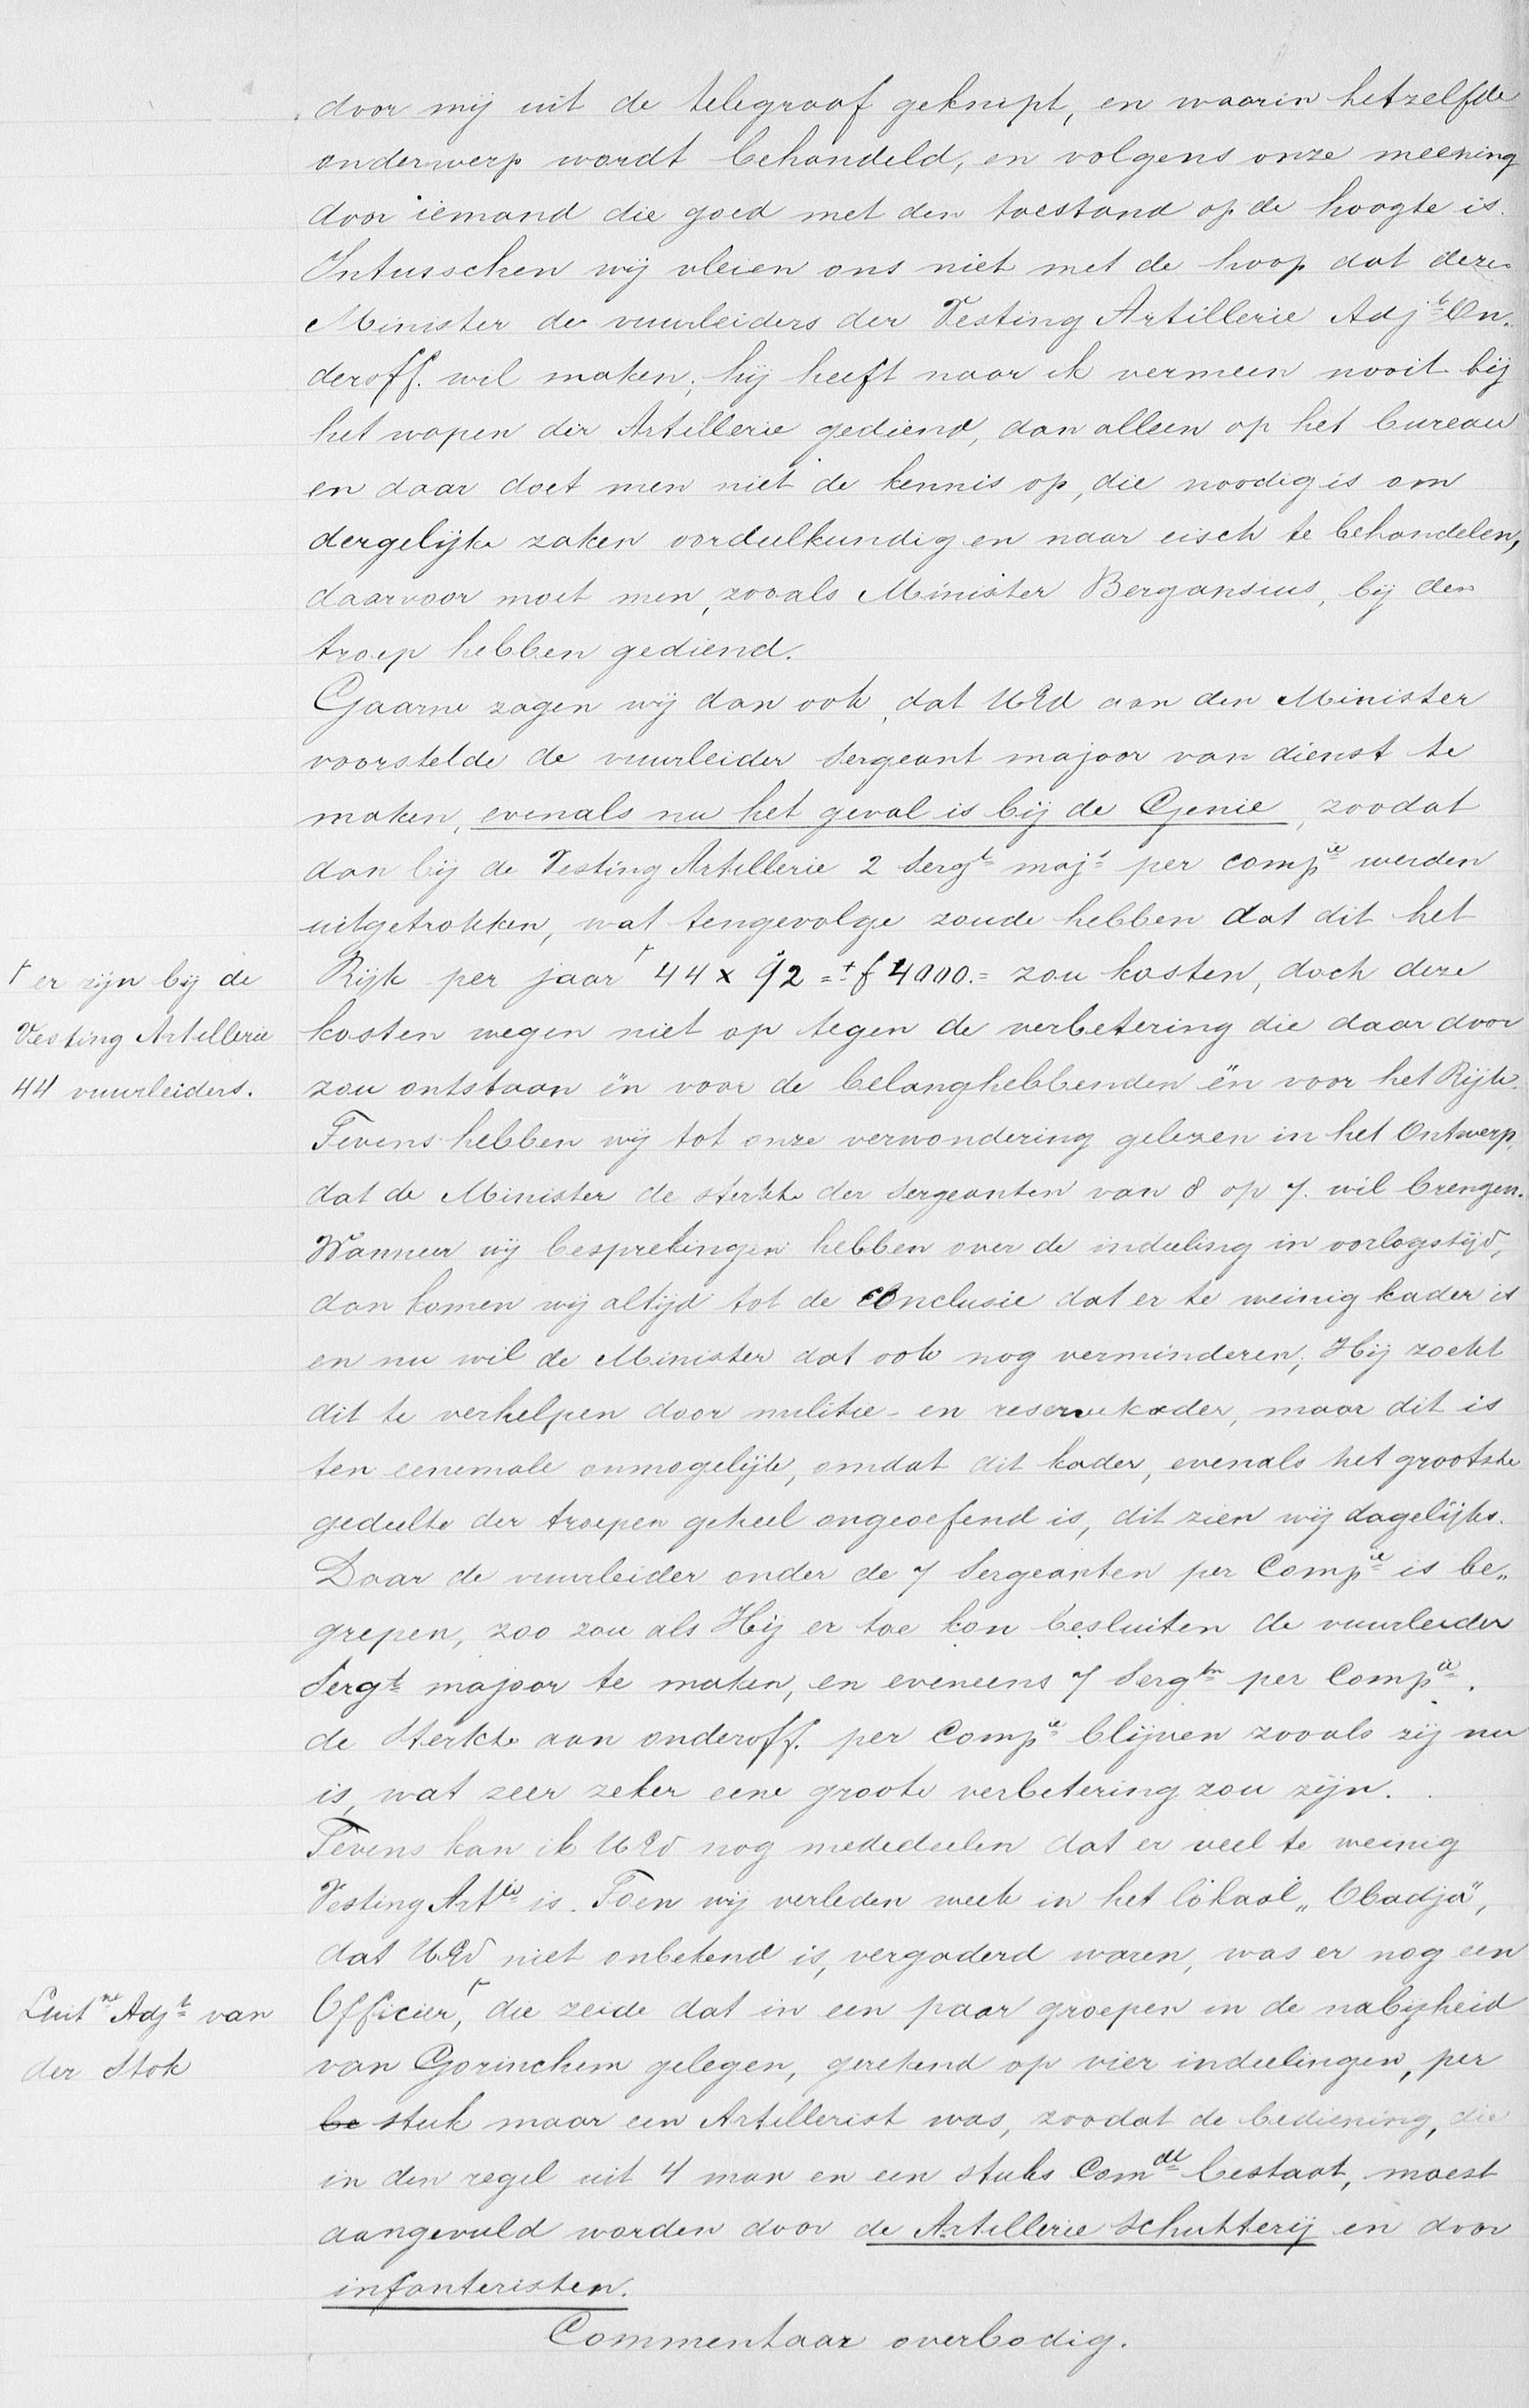 door mij uit de telegraaf geknipt, en waarin hetzelfde
onderwerp wordt behandeld, en volgens onze meening
door iemand die goed met den toestand op de hoogte is.
Intusschen wij vleien ons niet met de hoop dat deze
Minister de vuurleiders der Vesting Artillerie Adjt On„
deroff. wil maken; hij heeft naar ik vermeen nooit bij
het wapen der Artillerie gediend, dan alleen op het bureau
en daar doet men niet de kennis op, die noodig is om
dergelijke zaken oordeelkundig en naar eisch te behandelen,
daarvoor moet men, zooals Minister Bergansius, bij den
troep hebben gediend.
Gaarne zagen wij dan ook, dat UEd aan den Minister
voorstelde de vuurleider Sergeant majoor van dienst te
maken, evenals nu het geval is bij de Genie, zoodat
dan bij de Vesting Artillerie 2 Sergt majs per compie werden
uitgetrokken, wat tengevolge zoude hebben dat dit het
Rijk per jaar 44 x 92 = ± f 4000.= zou kosten, doch deze
kosten wegen niet op tegen de verbetering die daar door
zou ontstaan èn voor de belanghebbenden èn voor het Rijk.
Tevens hebben wij tot onze verwondering gelezen in het Ontwerp,
dat de Minister de sterkte der Sergeanten van 8 op 7. wil brengen.
Wanneer wij besprekingen hebben over de indeeling in oorlogstijd,
dan komen wij altijd tot de conclusie dat er te weinig kader is
en nu wil de Minister dat ook nog verminderen; Hij zoekt
dit te verhelpen door militie- en reservekader, maar dit is
ten eenemale onmogelijk, omdat dit kader, evenals het grootste
gedeelte der troepen geheel ongeoefend is, dit zien wij dagelijks.
Daar de vuurleider onder de 7 Sergeanten per Compie is be„
grepen, zoo zou als Hij er toe kon besluiten de vuurleider
Sergt majoor te maken, en eveneens 7 Sergtn per Compie.
de sterkte aan onderoff. per Compie blijven zooals zij nu
is, wat zeer zeker eene groote verbetering zou zijn.
Tevens kan ik UEd nog mededeelen dat er veel te weinig
Vesting Artie is. Toen wij verleden week in het lokaal „Obadja",
dat UEd niet onbekend is, vergaderd waren, was er nog een
Officier, die zeide dat in een paar groepen in de nabijheid
van Gorinchem gelegen, gerekend op vier indeelingen, per
be stuk maar een Artillerist was, zoodat de bediening, die
in den regel uit 4 man en een stuks Comdt bestaat, moest
aangevuld worden door de Artillerie Schutterij en door
infanteristen.
Commentaar overbodig.
er zijn bij de
Vesting Artillerie
44 vuurleiders.
Luitnt Adjt van
der Stok